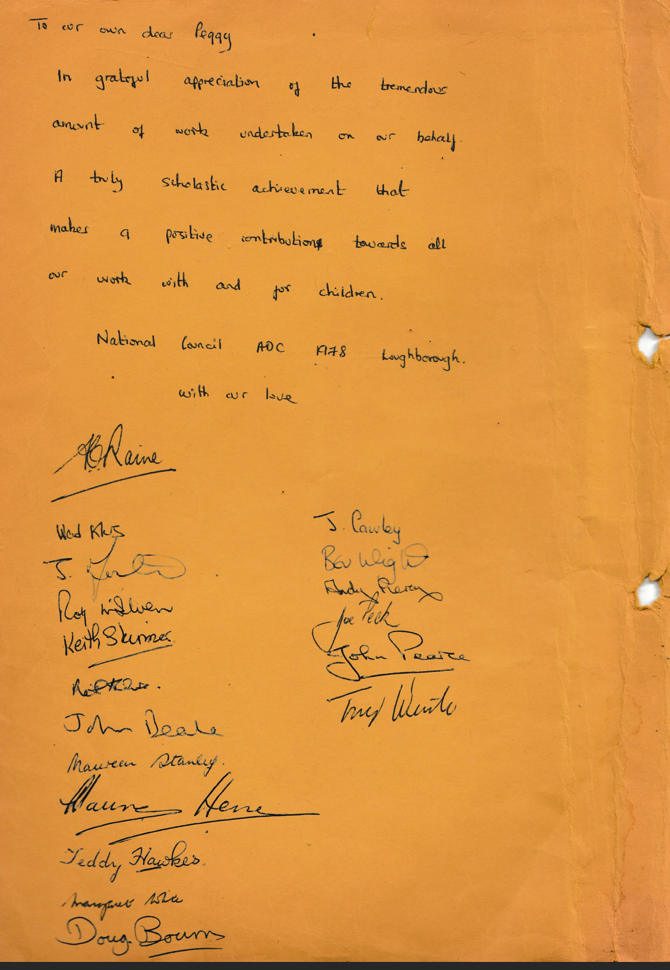 To our own dear Peggy
In grateful appreciation of the tremendous
amount of work undertaken on our behalf.
A truly scholastic achievement that
makes a positive contribution towards all
our work with and for children.
National Council ADC 1978 Loughborough.
with our love
Raine
J. Cawley
J.
Bev
Roy
Andy
Keith Skinner
Joe Peck
John Pearce
John Beale
Tony
Maureen Stanley.
Teddy Hawkes.
Margaret
Doug Bourn